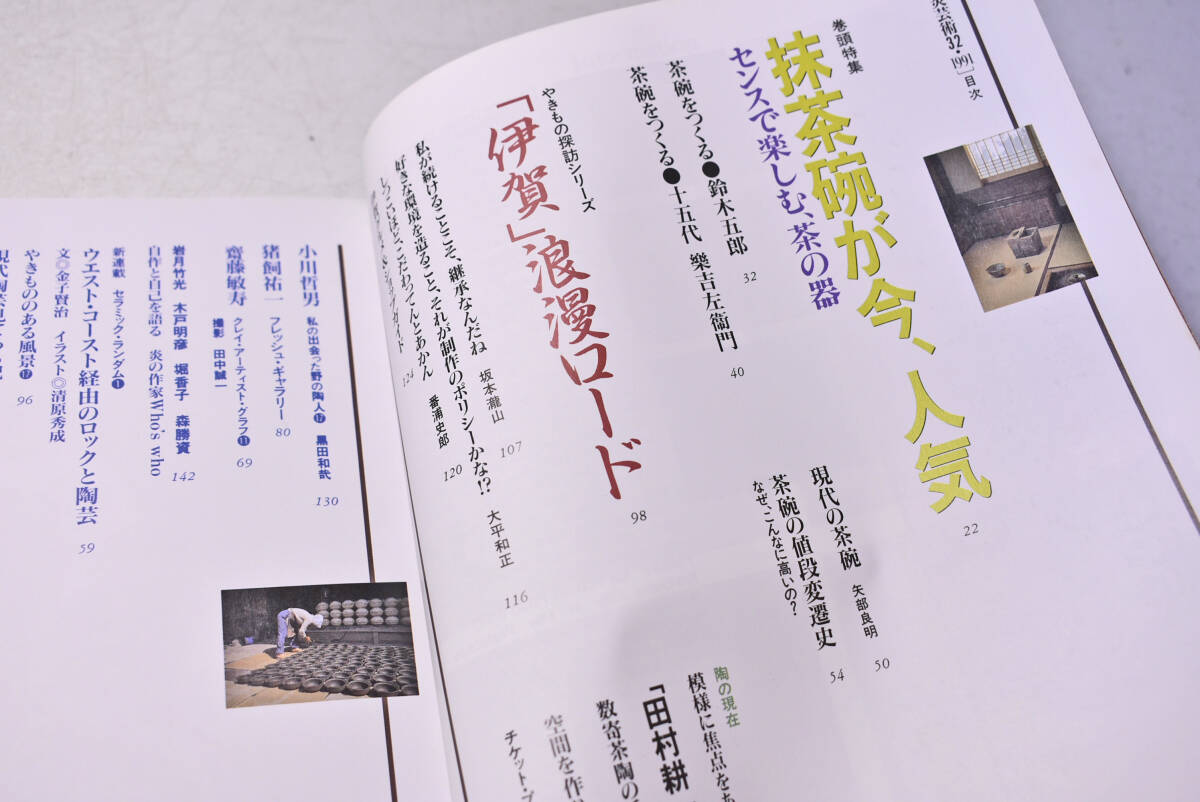 炎芸術32・1991］目次
巻頭特集
抹茶碗が今、人気
22
センスで楽しむ、茶の器
現代の茶碗 矢部良明 50
茶碗の値段変遷史 54
なぜ、こんなに高いの？
茶碗をつくる●鈴木五郎 32
茶碗をつくる●十五代 樂吉左衞門 40
やきもの探訪シリーズ
「伊賀」浪漫ロード
98
私が続けることこそ、継承なんだね 坂本瀧山 107
好きな環境を造ること、それが制作のポリシーかな!? 大平和正 116
しつこいほどこだわってんとあかん 番浦史郎 120
124
陶の現在
模様に焦点をあ
「田村耕
数寄茶陶の
空間を作
チケット・プ
小川哲男 私の出会った野の陶人⑰ 黒田和哉 130
猪飼祐一 フレッシュ・ギャラリー 80
齋藤敏寿 クレイ・アーティスト・グラフ⑪ 69
撮影 田中誠一
岩月竹光 木戸明彦 堀香子 森勝資 142
自作と自己を語る 炎の作家Who's who
新連載 セラミック・ランダム❶
ウエスト・コースト経由のロックと陶芸 59
文◎金子賢治 イラスト◎清原秀成
やきもののある風景⑰ 96